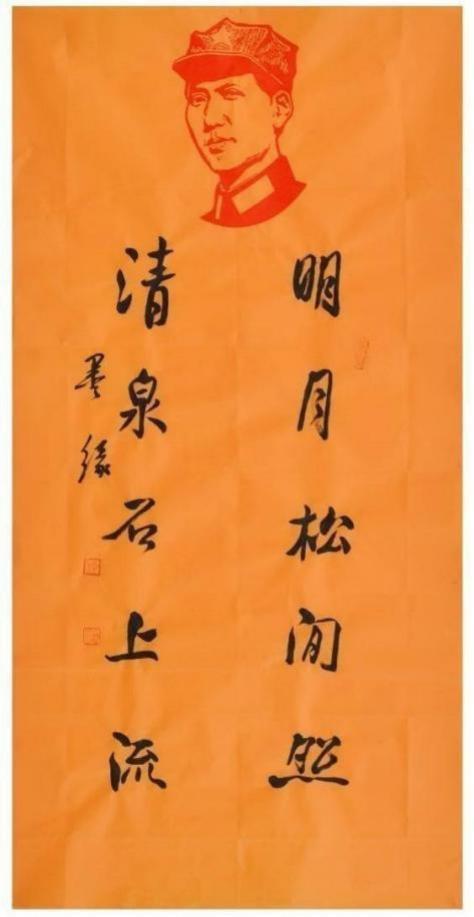 明月松间照
清泉石上流
墨缘